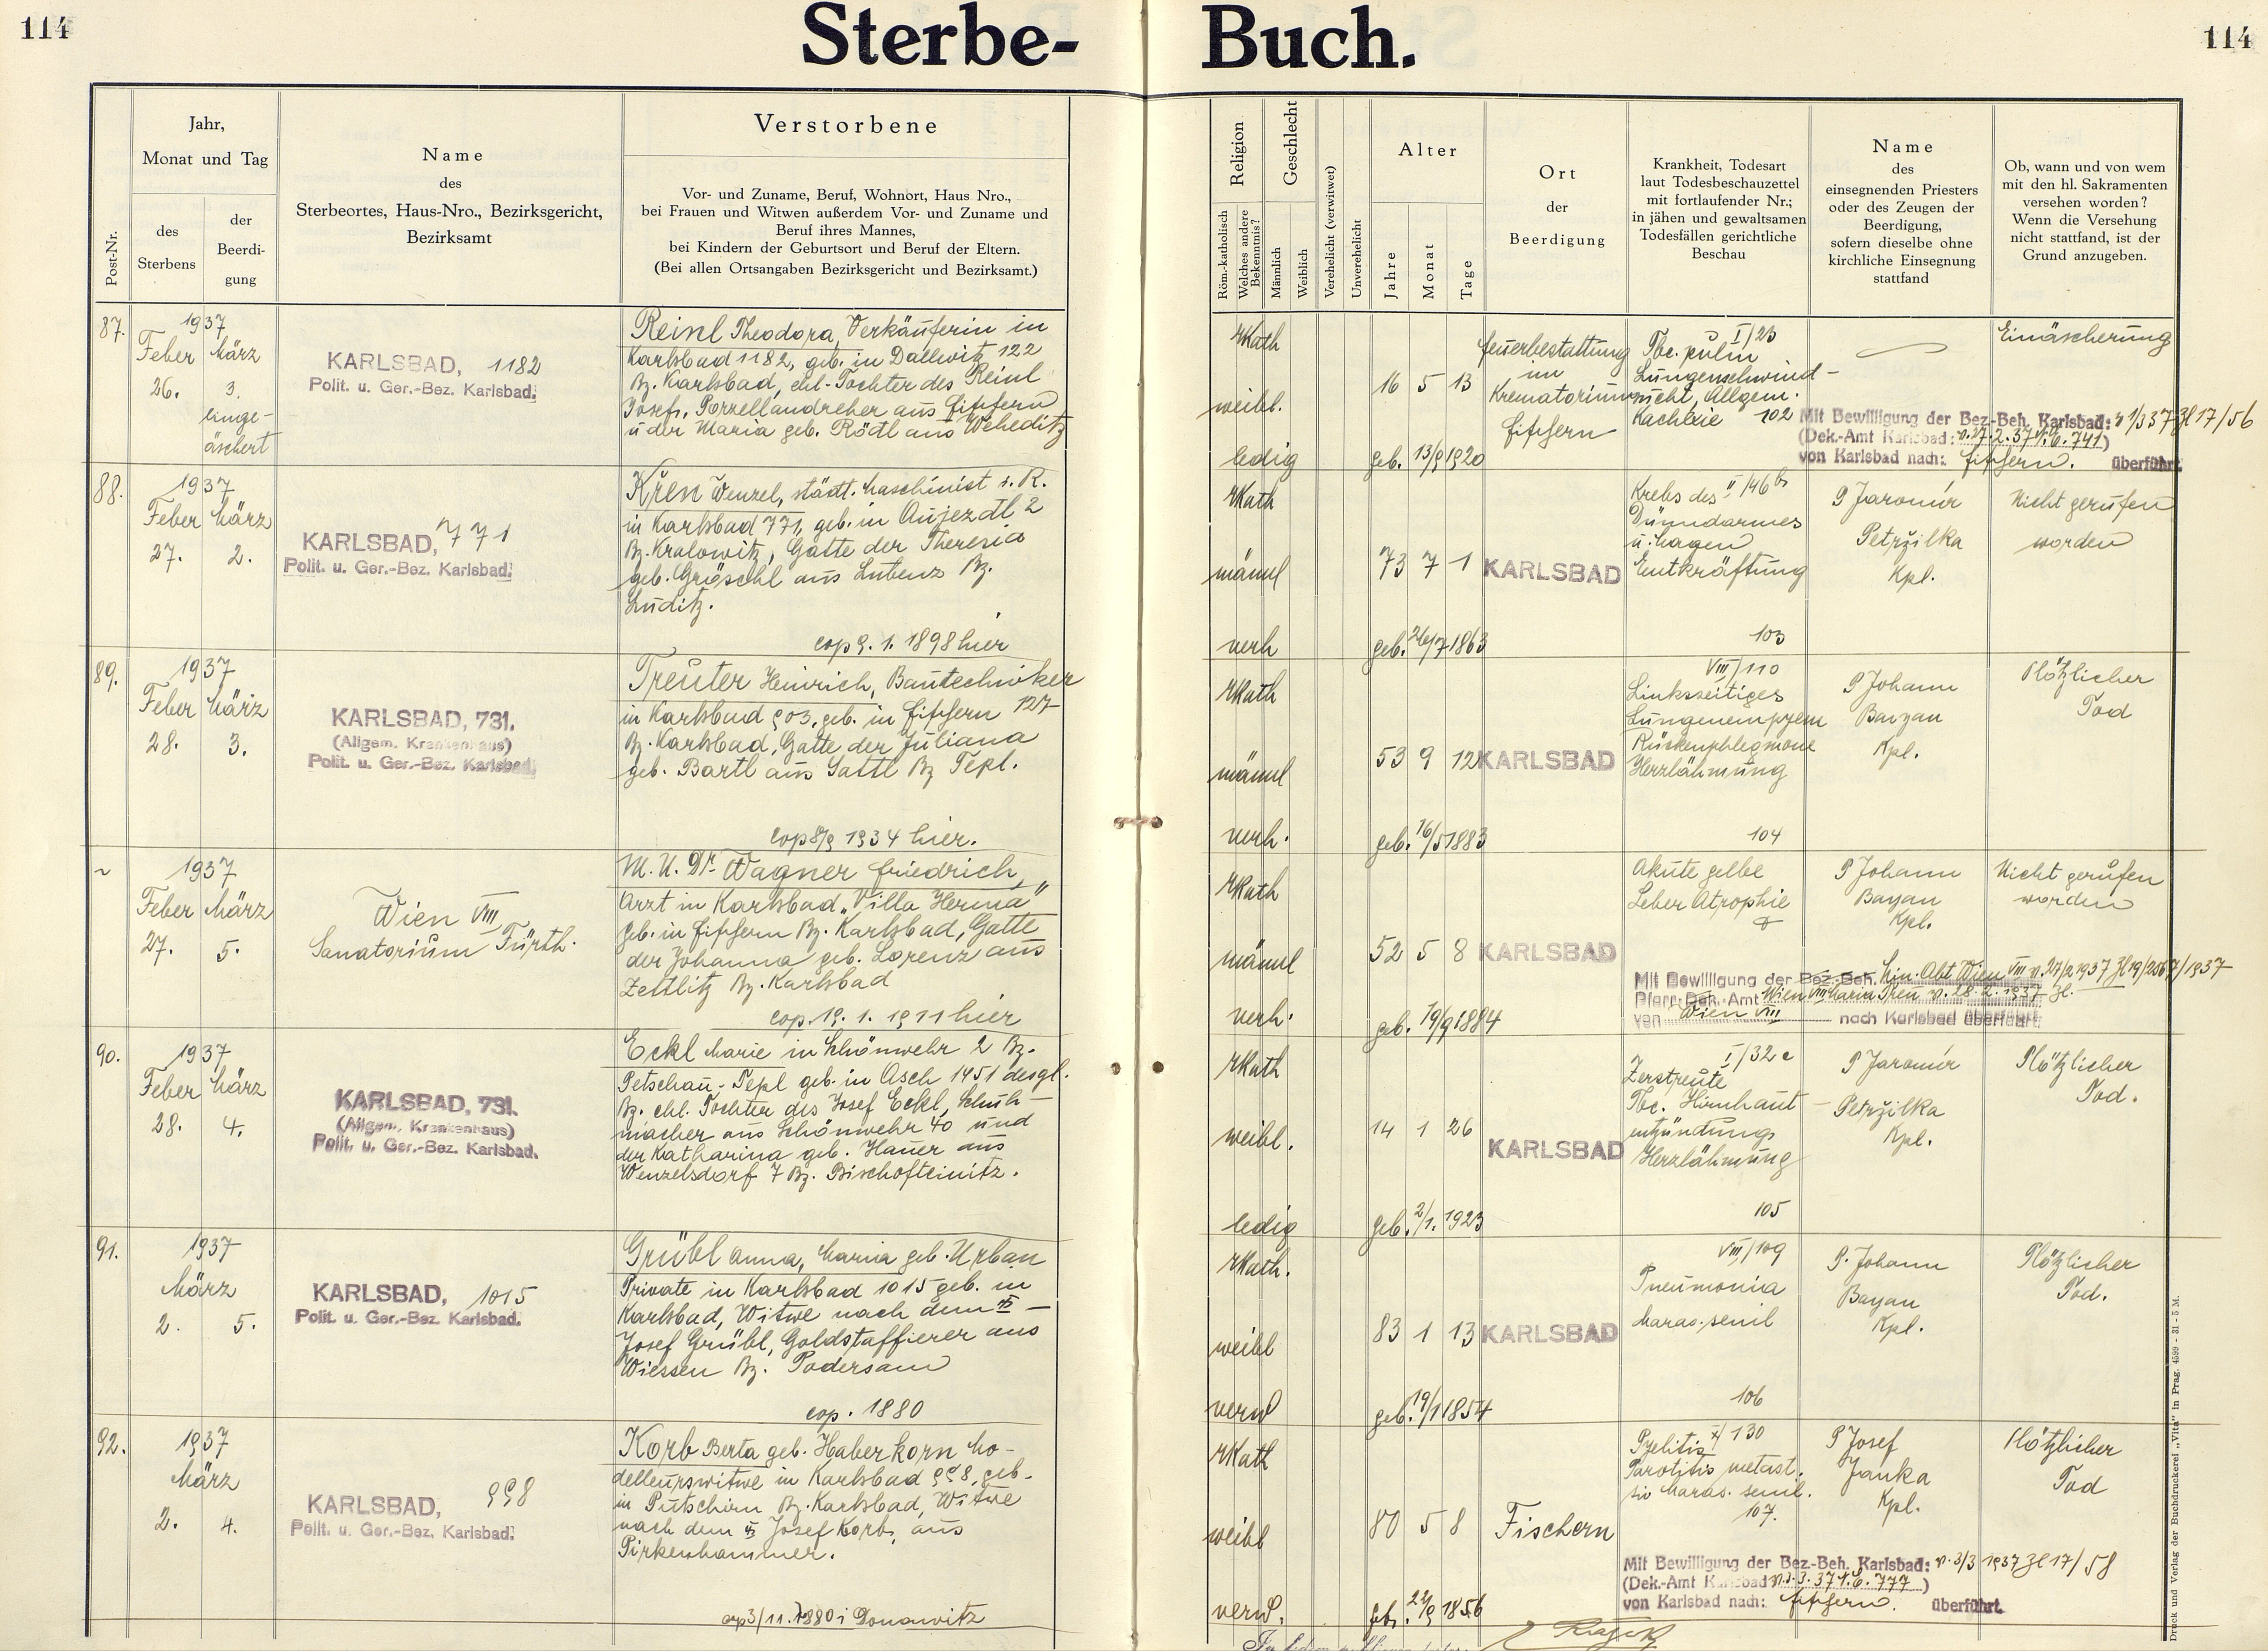 114
Sterbe-
Buch.
114
Post-Nr.
Jahr,
Monat und Tag
des
Sterbens
der
Beerdi-
gung
Name
des
Sterbeortes, Haus-Nro., Bezirksgericht,
Bezirksamt
Verstorbene
Vor- und Zuname, Beruf, Wohnort, Haus Nro.,
bei Frauen und Witwen außerdem Vor- und Zuname und
Beruf ihres Mannes,
bei Kindern der Geburtsort und Beruf der Eltern.
(Bei allen Ortsangaben Bezirksgericht und Bezirksamt.)
Religion
Röm.-katholisch
Welches andere
Bekenntnis?
Geschlecht
Männlich
Weiblich
Verehelicht (verwitwet)
Unverehelicht
Alter
Jahre
Monat
Tage
Ort
der
Beerdigung
Krankheit, Todesart
laut Todesbeschauzettel
mit fortlaufender Nr.;
in jähen und gewaltsamen
Todesfällen gerichtliche
Beschau
Name
des
einsegnenden Priesters
oder des Zeugen der
Beerdigung,
sofern dieselbe ohne
kirchliche Einsegnung
stattfand
Ob, wann und von wem
mit den hl. Sakramenten
versehen worden?
Wenn die Versehung
nicht stattfand, ist der
Grund anzugeben.
87.
1937
Feber März
26. 3.
einge-
äschert
KARLSBAD, 1182
Polit. u. Ger.-Bez. Karlsbad.
Reinl Theodora, Verkäuferin in
Karlsbad 1182, geb. in Dallwitz 122
Bz. Karlsbad, ehl. Tochter des Reinl
Josef, Porzellandreher aus Fischern
u der Maria geb. Rödl aus Weheditz
rkath
weibl.
ledig
16 5 13
geb. 13/9 1920
Feuerbestattung
im
Krematorium
Fischern
I/23
Tbc. pulm
Lungenschwind-
sucht, Allgem.
Kachexie 102
Einäscherung
Mit Bewilligung der Bez.-Beh. Karlsbad: v 1/3 37 Zl 17/56
(Dek.-Amt Karlsbad: v. 27.2.37 N.E. 741)
von Karlsbad nach: Fischern. überführt.
88.
1937
Feber März
27. 2.
KARLSBAD, 771
Polit. u. Ger.-Bez. Karlsbad.
Křen Wenzel, städt. Maschinist i. R.
in Karlsbad 771, geb. in Aujezdl 2
Bz. Kralowitz, Gatte der Theresia
geb. Gröschl aus Lubenz Bz.
Luditz.
cop 9. 1. 1898 hier
rkath
männl
verh
73 7 1
geb. 26/7 1863
KARLSBAD
Krebs des II/46 b
Dünndarmes
u. Magen
Entkräftung
103
P Jaromír
Petržilka
Kpl.
Nicht gerufen
worden
89.
1937
Feber März
28. 3.
KARLSBAD, 731.
(Allgem. Krankenhaus)
Polit. u. Ger.-Bez. Karlsbad.
Treuter Heinrich, Bautechniker
in Karlsbad 903, geb. in Fischern 127
Bz. Karlsbad, Gatte der Juliana
geb. Bartl aus Sattl Bz Tepl.
cop 8/9 1934 hier.
rkath
männl
verh.
53 9 12
geb. 16/5 1883
KARLSBAD
VIII/110
Linksseitiges
Lungenempyem
Rückenphlegmone
Herzlähmung
104
P Johann
Bayan
Kpl.
Plötzlicher
Tod
~
1937
Feber März
27. 5.
Wien VIII
Sanatorium Fürth.
M. U. Dr. Wagner Friedrich,
Arzt in Karlsbad „Villa Herma"
geb. in Fischern Bz. Karlsbad, Gatte
der Johanna geb. Lorenz aus
Zettlitz Bz. Karlsbad
cop. 19. 1. 1911 hier
rkath
männl
verh.
52 5 8
geb. 19/9 1884
KARLSBAD
Akute gelbe
Leber Atrophie
P Johann
Bayan
Kpl.
Nicht gerufen
worden
Mit Bewilligung der Bez.-Beh. Min. Abt Wien VIII v. 27/2 1937 Zl 19/256/7/1937
Pfarr-Dek. Amt Wien VIII Maria Treu v. 28. 2. 1937 Zl.
von Wien VIII nach Karlsbad überführt.
90.
1937
Feber März
28. 4.
KARLSBAD, 731.
(Allgem. Krankenhaus)
Polit. u. Ger.-Bez. Karlsbad.
Eckl Marie in Schönwehr 2 Bz.
Petschau-Tepl geb. in Asch 1451 desgl.
Bz. ehl. Tochter des Josef Eckl, Schuh-
macher aus Schönwehr 40 und
der Katharina geb. Hauer aus
Wenzelsdorf 7 Bz. Bischofteinitz.
rkath
weibl.
ledig
14 1 26
geb. 2/1. 1923
KARLSBAD
I/32 c
Zerstreute
Tbc. Hirnhaut-
entzündung
Herzlähmung
105
P Jaromír
Petržilka
Kpl.
Plötzlicher
Tod.
91.
1937
März
2. 5.
KARLSBAD, 1015
Polit. u. Ger.-Bez. Karlsbad.
Grübl Anna, Maria geb. Urban
Private in Karlsbad 1015 geb. in
Karlsbad, Witwe nach dem
Josef Grübl, Goldstaffierer aus
Wiessen Bz. Podersam
cop. 1880
rkath.
weibl
verw
83 1 13
geb. 19/1 1854
KARLSBAD
VIII/109
Pneumonia
Maras. senil
106
P. Johann
Bayan
Kpl.
Plötzlicher
Tod.
92.
1937
März
2. 4.
KARLSBAD, 998
Polit. u. Ger.-Bez. Karlsbad.
Korb Berta geb. Haberkorn Mo-
delleurswitwe in Karlsbad 998, geb.
in Putschirn Bz. Karlsbad, Witwe
nach dem Josef Korb, aus
Pirkenhammer.
cop 3/11. 1880 i Donawitz
rkath
weibl
verw.
80 5 8
geb. 22/9 1856
Fischern
X/130
Pyelitis
Parotitis metast.
Maras. senil.
107.
P Josef
Janka
Kpl.
Plötzlicher
Tod
Mit Bewilligung der Bez.-Beh. Karlsbad: v. 3/3 1937 Zl 17/58
(Dek.-Amt Karlsbad v. 3. 3. 37 N.E. 777)
von Karlsbad nach: Fischern. überführt.
Druck und Verlag der Buchdruckerei „Vita" in Prag. 4599 - 31 - 5 M.